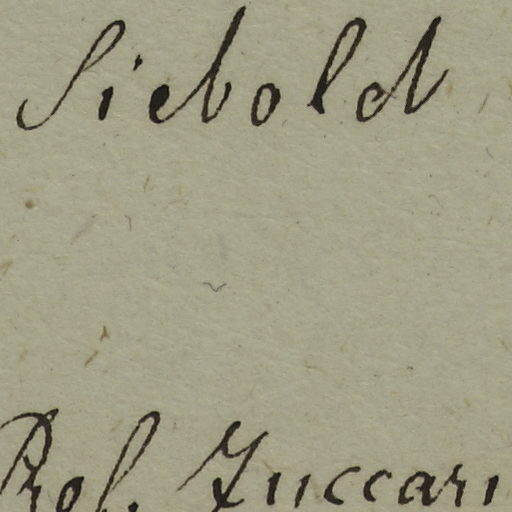 Siebold
Prof. Zuccari